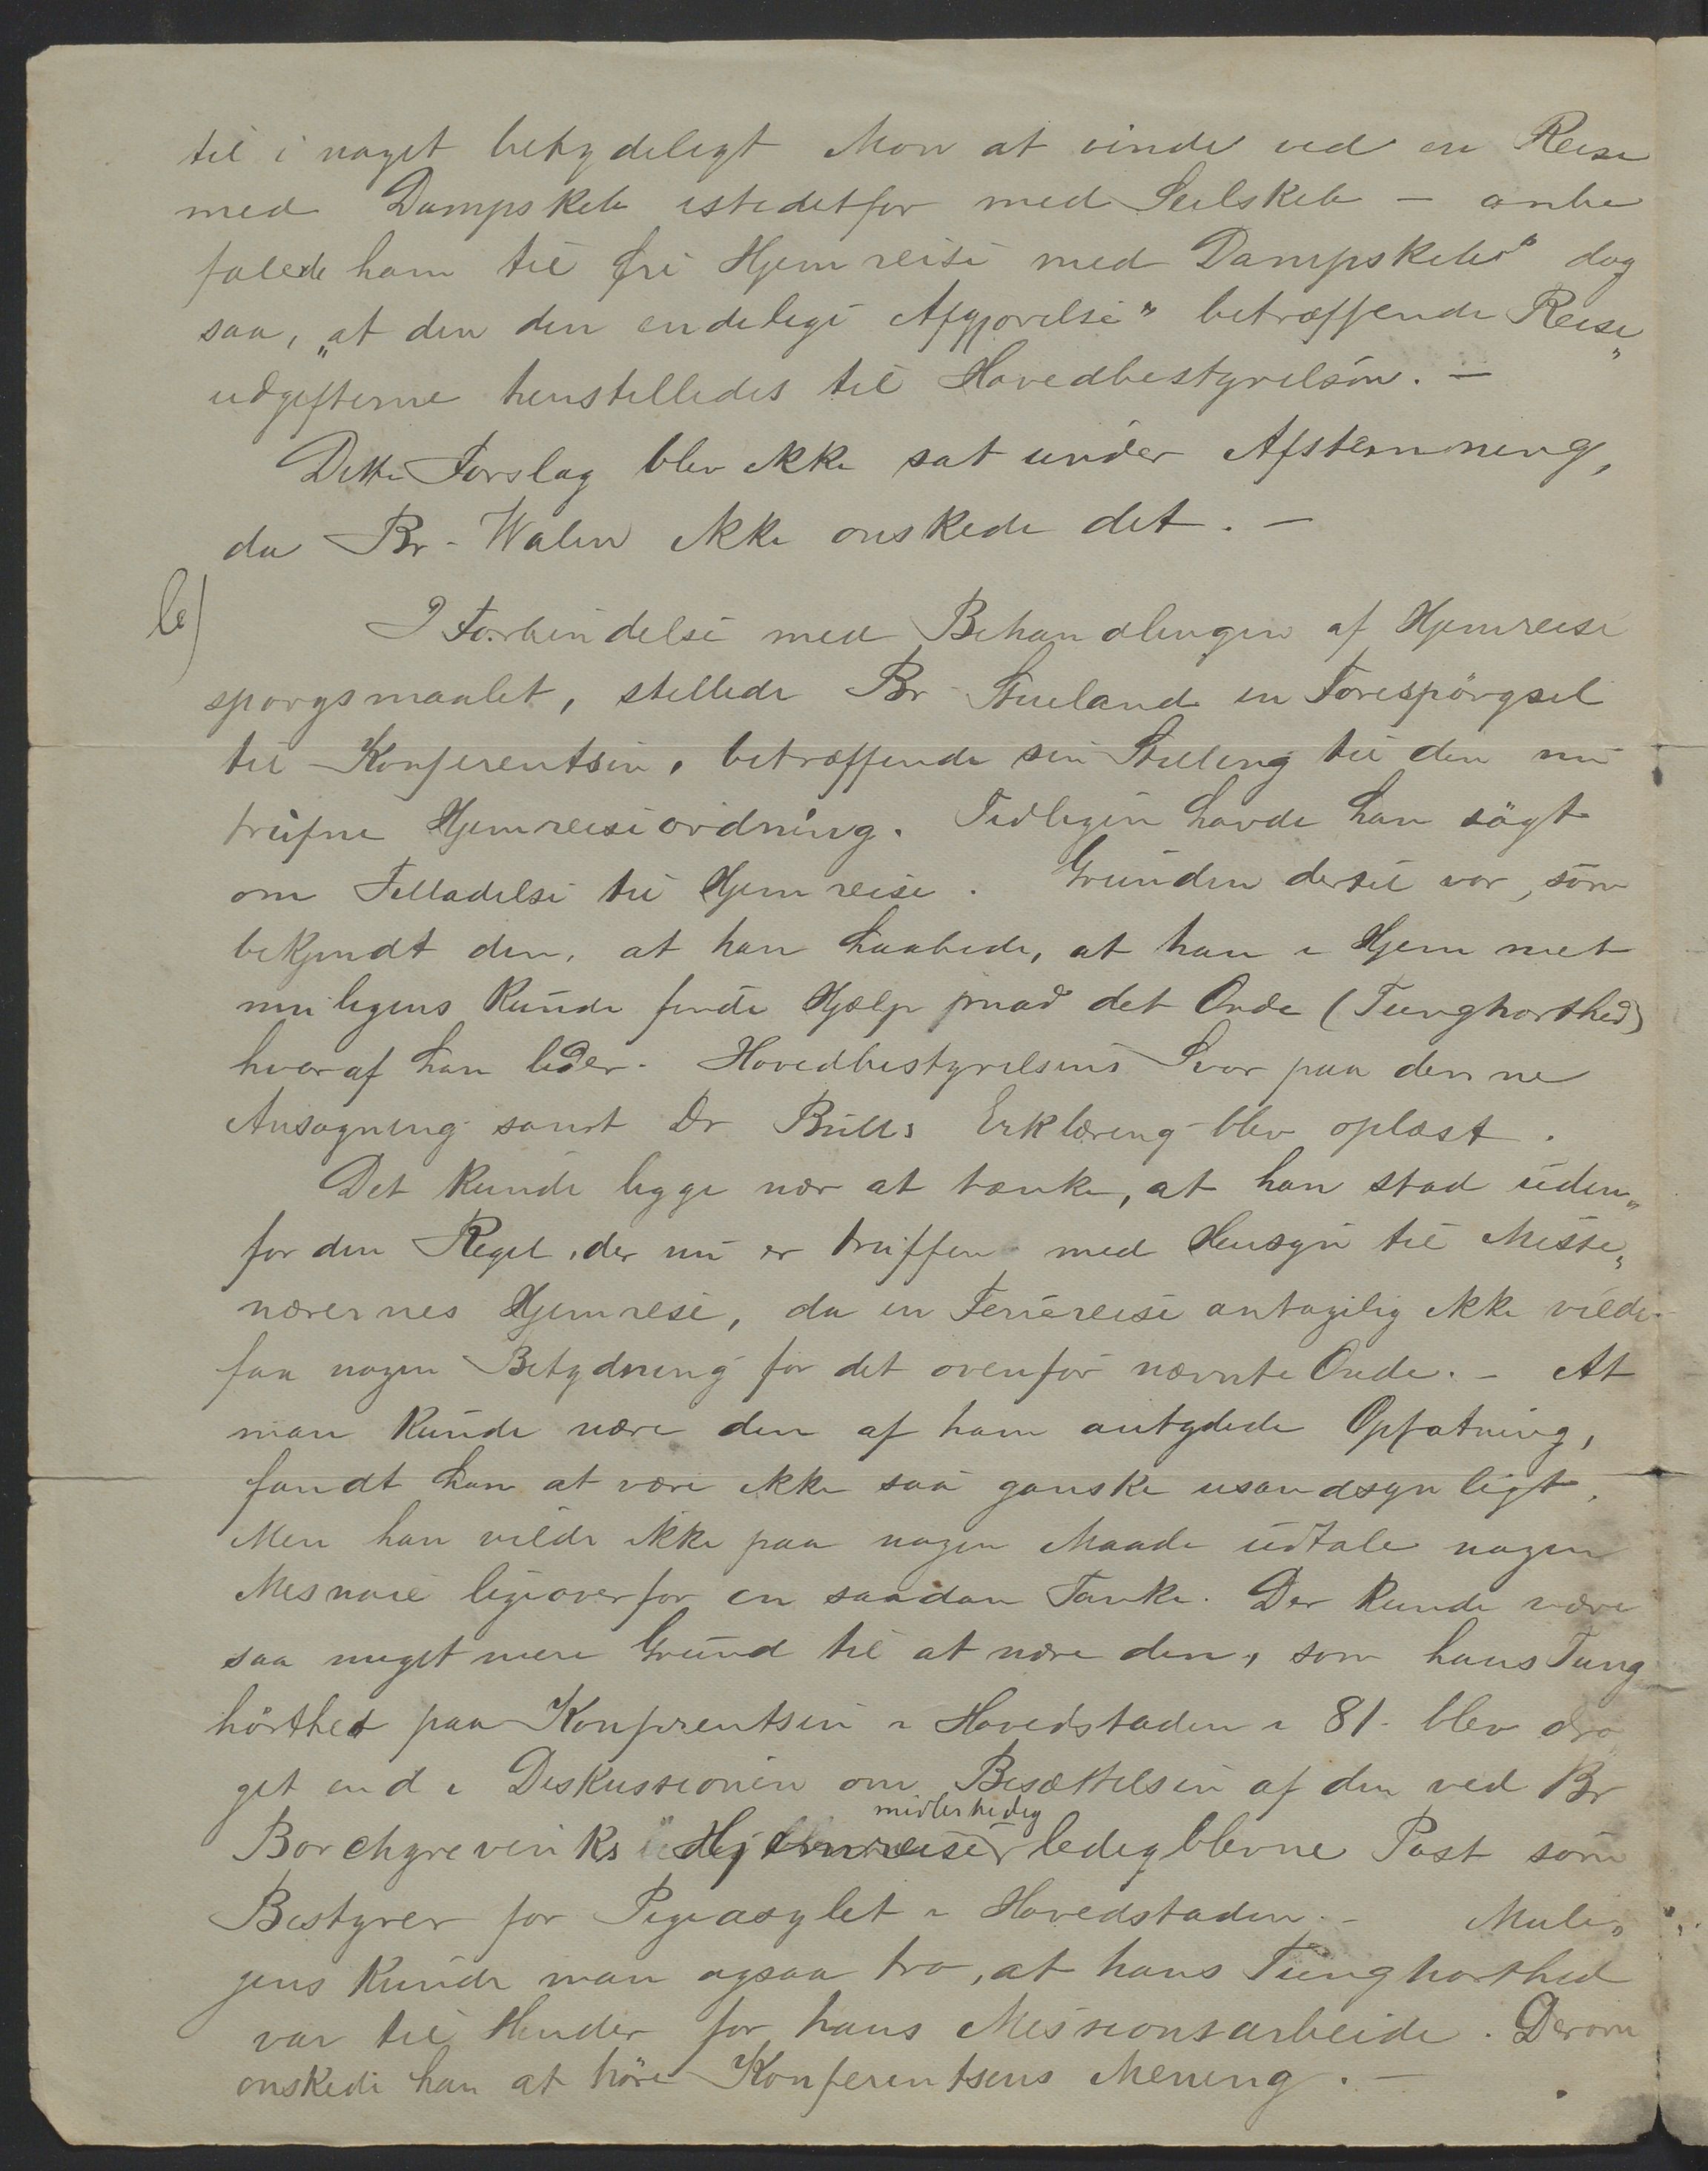 til i noget betydeligt Mon at vinde ved en Reise
med Dampskib istedetfor med Seilskib – anbe
falede ham til fri Hjemreise med Dampskib" dog
saa, „at den den endelige Afgjørelse" betræffende Reise„
udgifterne henstilledes til Hovedbestyrelsen. –
Dette Forslag blev ikke sat under Afstemning,
da Br. Walen ikke onskede det. –
b)
I Forbindelse med Behandlingen af Hjemreise
sporgsmaalet, stillede Br Stueland en Forespörgsel
til Konferentsen, betræffende sin Stilling til den nu
trufne Hjemreiseordning. Tidligere havde han sögt
om Tilladelse til Hjemreise. Grunden dertil var, som
bekjendt den, at han haabede, at han i Hjemmet
muligens kunde finde Hjælp mod det Onde (Tunghorthed)
hvoraf han lider. Hovedbestyrelsens Svar paa denne
Ansogning samt Dr Bulls Erklæring blev oplæst.
Det kunde ligge nær at tænke, at han stod uden„
for den Regel, der nu er truffen med Hensyn til Missio„
nærernes Hjemreise, da en Feriereise antagelig ikke vilde
faa nogen Betydning for det ovenfor nævnte Onde. – At
man kunde nære den af ham antydede Opfatning,
fandt han at være ikke saa ganske usandsynligt.
Men han vilde ikke paa nogen Maade udtale nogen
Misnoie ligeoverfor en saadan Tanke. Der kunde være
saa meget mere Grund til at nære den, som hans Tung
hörthed paa Konferentsen i Hovedstaden i 81. blev dra
get ind i Diskussionen om Besættelsen af den ved Br
Borchgrevinks Hjemreise midlertidig ledigblevne Post som
Bestyrer for Pigeasylet i Hovedstaden. – Muli„
gens kunde man ogsaa tro, at hans Tunghorthed
var til Hinder for hans Missionsarbeide. Derom
onskede han at höre Konferentsens Mening. –